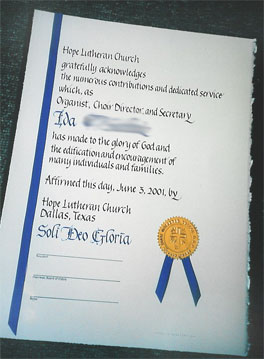 Hope Lutheran Church
gratefully acknowledges
the numerous contributions and dedicated service
which, as
Organist, Choir Director, and Secretary
Ida
has made to the glory of God and
the edification and encouragement of
many individuals and families.
Affirmed this day, June 3, 2001, by
Hope Lutheran Church
Dallas, Texas
Soli Deo Gloria